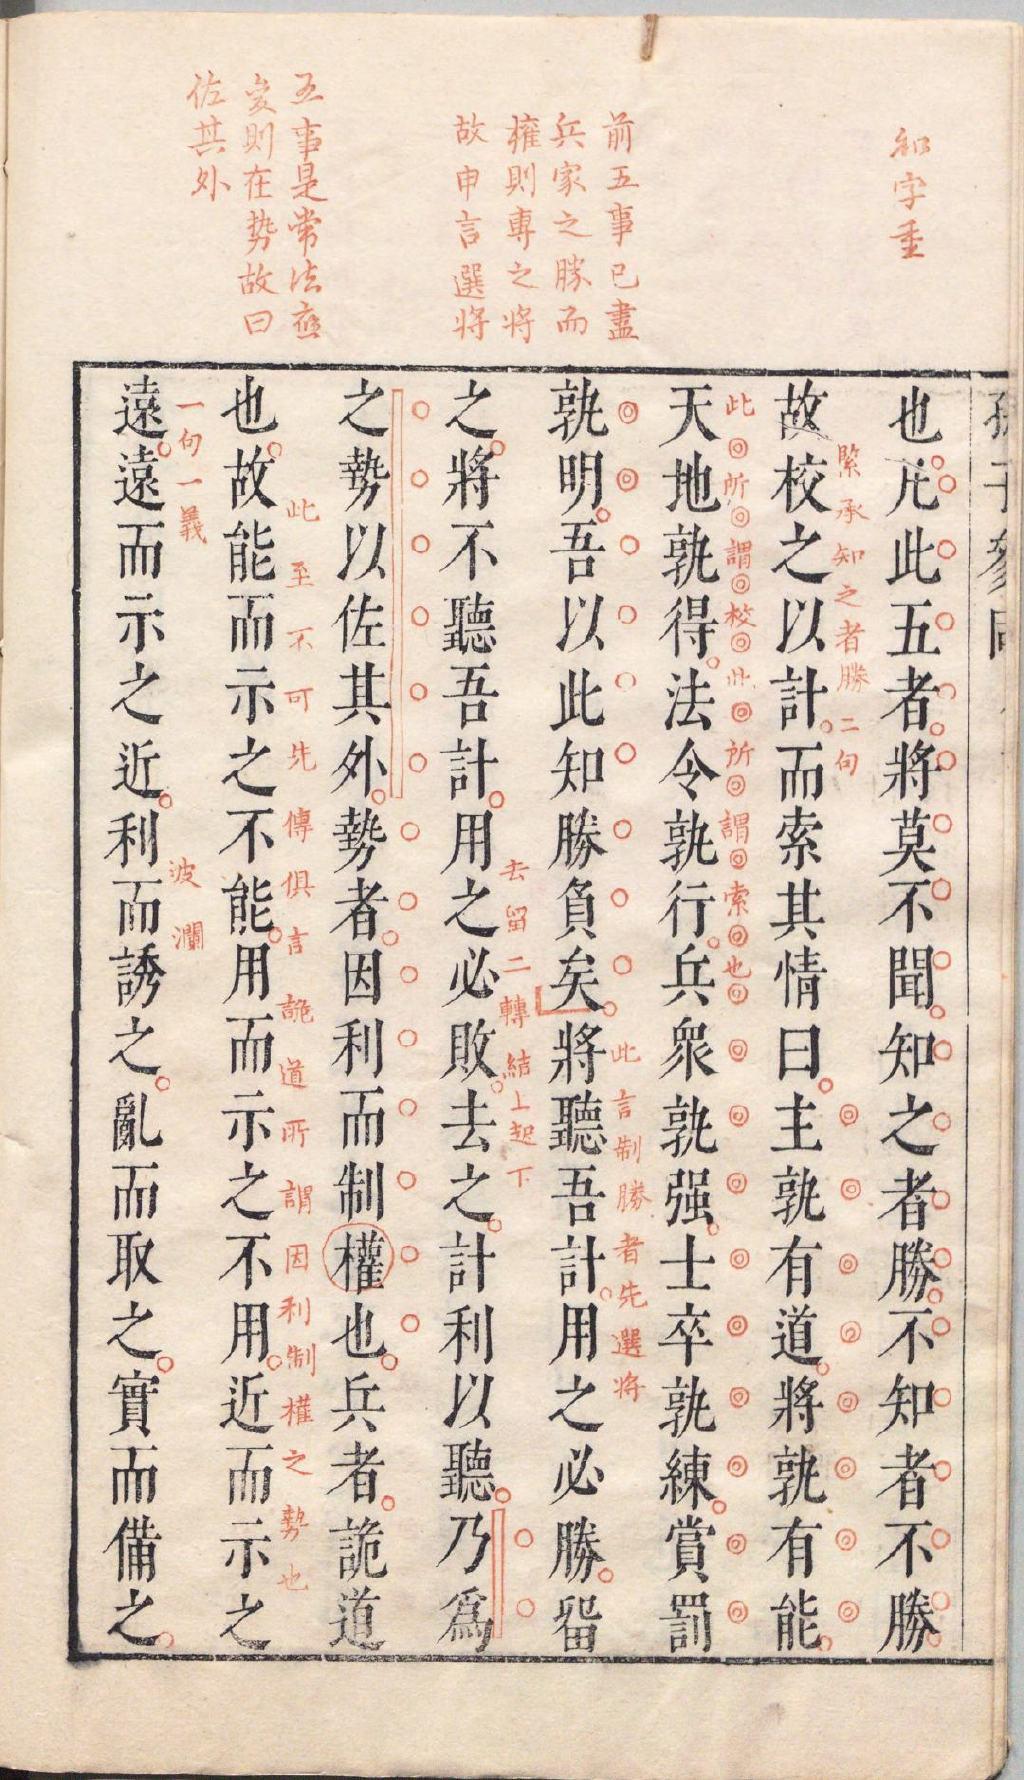 知字重
前五事已盡
兵家之勝而
權則專之將
故申言選將
五事是常法應
變則在勢故曰
佐其外
孫子參同
也凡此五者將莫不聞知之者勝不知者不勝
緊承知之者勝二句
故校之以計而索其情曰主孰有道將孰有能
此所謂校此所謂索也
天地孰得法令孰行兵衆孰强士卒孰練賞罰
孰明吾以此知勝負矣將聽吾計用之必勝留
此言制勝者先選將
之將不聽吾計用之必敗去之計利以聽乃爲
去留二轉結上起下
之勢以佐其外勢者因利而制權也兵者詭道
也故能而示之不能用而示之不用近而示之
此至不可先傳俱言詭道所謂因利制權之勢也
遠遠而示之近利而誘之亂而取之實而備之
一句一義
波瀾